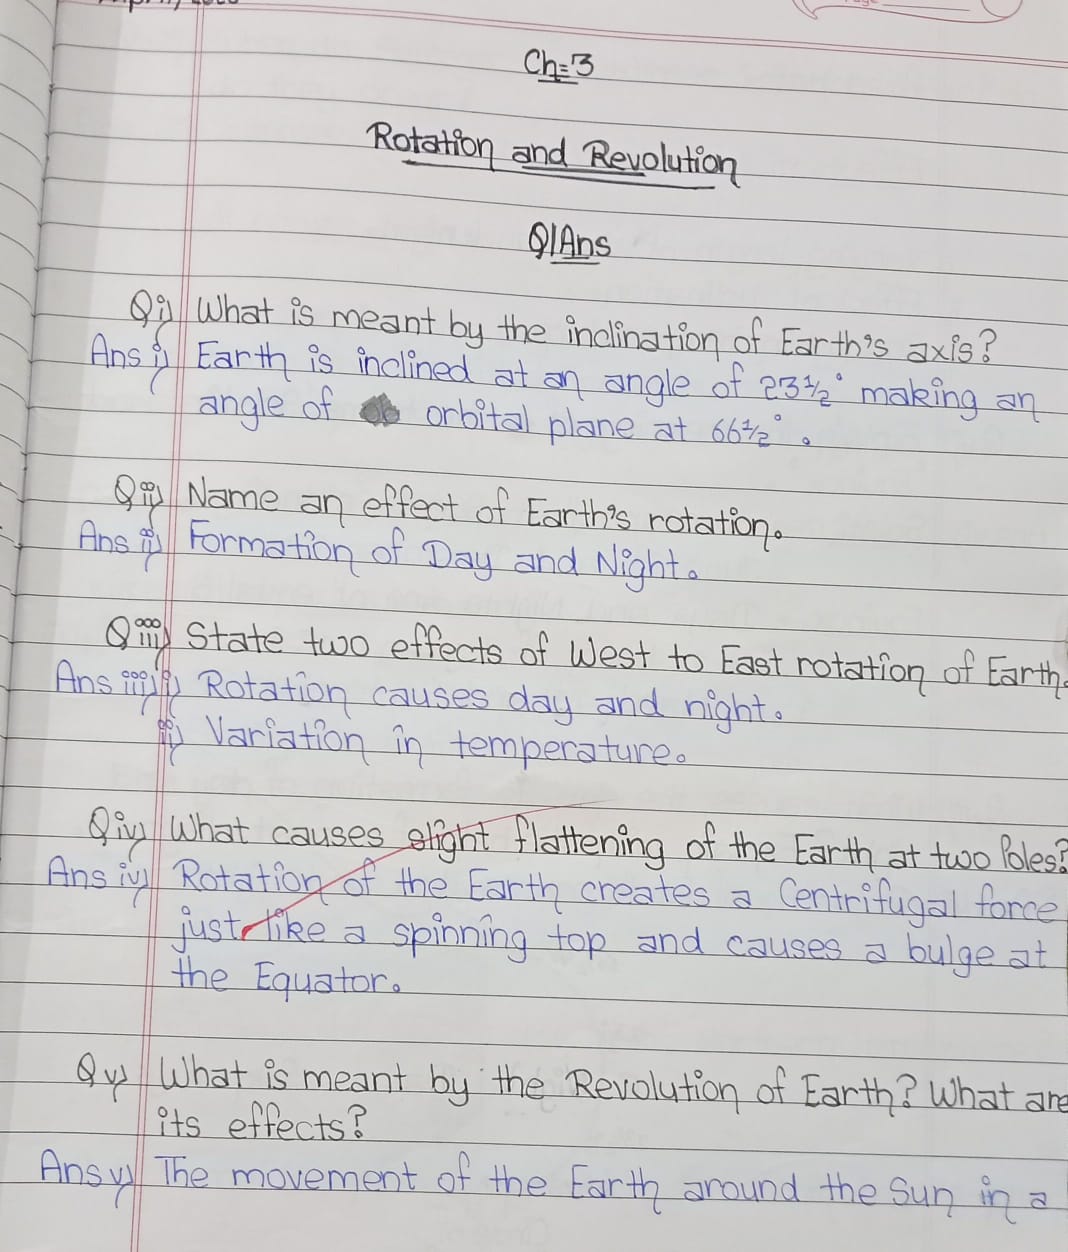 Ch=3
Rotation and Revolution
Q/Ans
Qi) What is meant by the inclination of Earth's axis?
Ans i) Earth is inclined at an angle of 23½° making an
angle of orbital plane at 66½°.
Qii) Name an effect of Earth's rotation.
Ans ii) Formation of Day and Night.
Qiii) State two effects of West to East rotation of Earth.
Ans iii) i) Rotation causes day and night.
ii) Variation in temperature.
Qiv) What causes slight flattening of the Earth at two Poles?
Ans iv) Rotation of the Earth creates a Centrifugal force
just like a spinning top and causes a bulge at
the Equator.
Qv) What is meant by the Revolution of Earth? What are
its effects?
Ans v) The movement of the Earth around the Sun in a